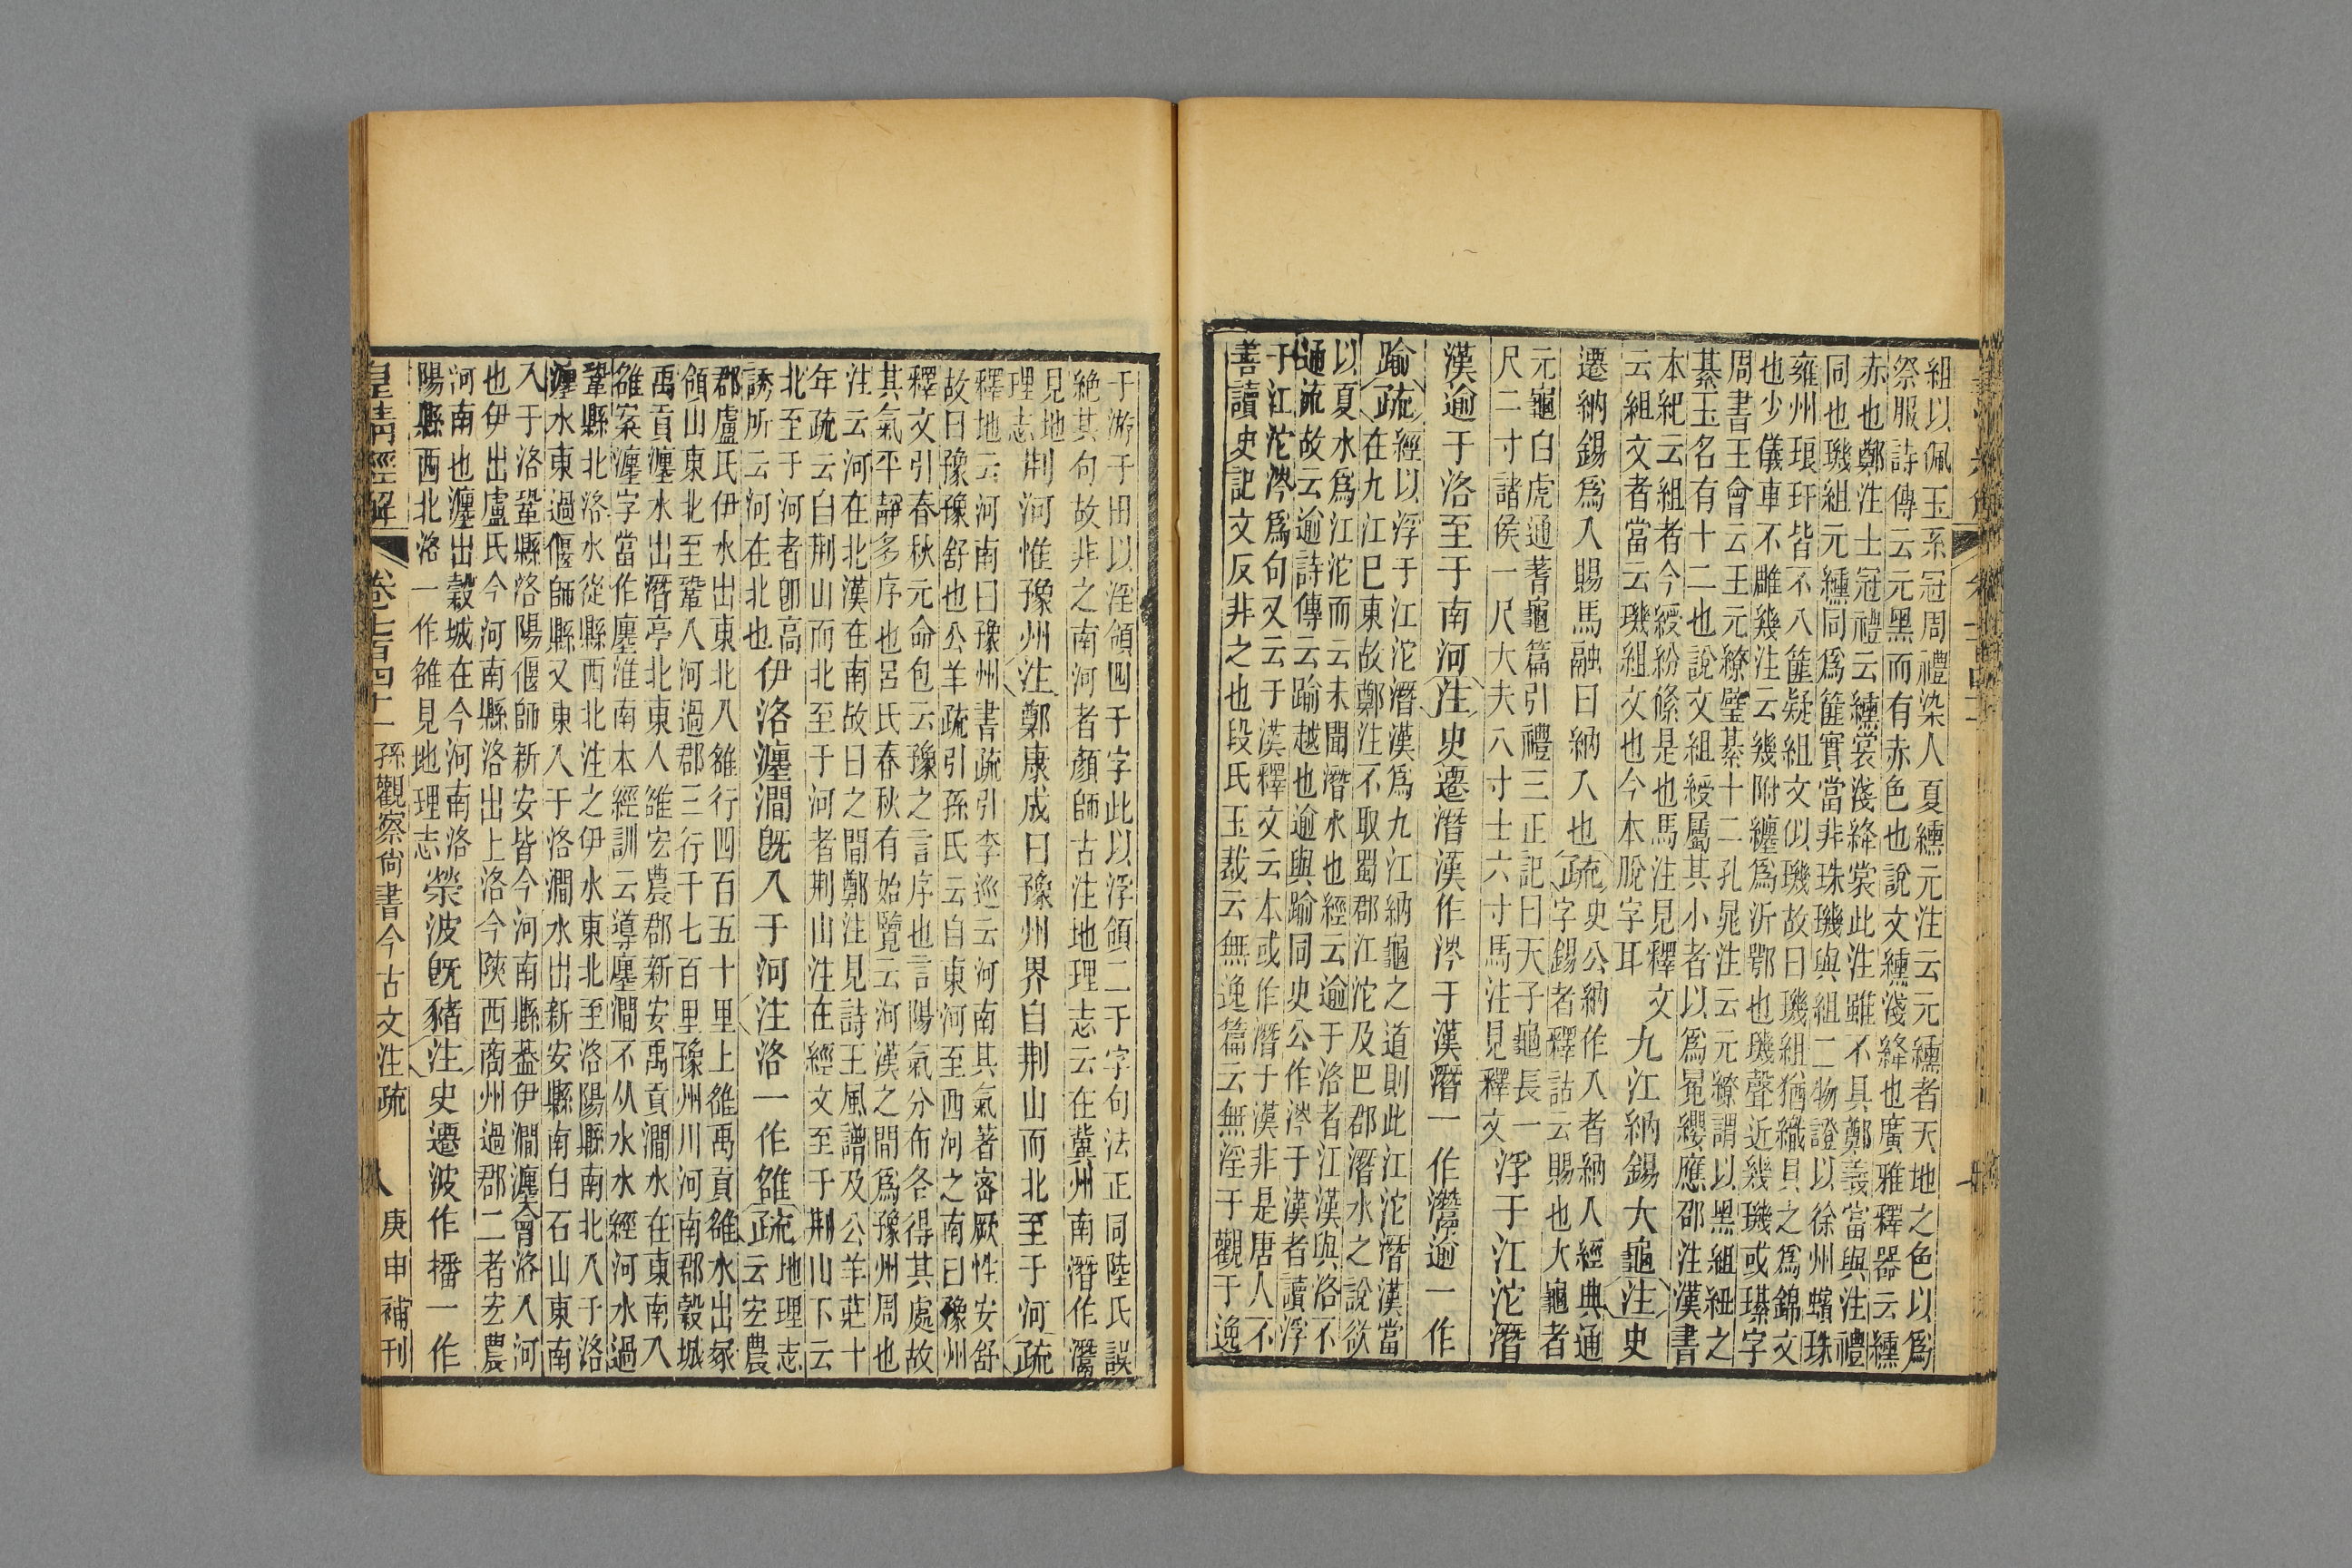 組以佩玉系冠周禮染人夏纁元注云元纁者天地之色以爲
祭服詩傳云元黑而有赤色也說文纁淺絳也廣雅釋器云纁
赤也鄭注士冠禮云纁裳淺絳裳此注雖不具鄭義當與注禮
同也璣組元纁同爲篚實當非珠璣與組二物證以徐州蠙珠
雍州琅玕皆不入篚疑組文似璣故曰璣組猶織貝之爲錦文
也少儀車不雕幾注云幾附纏爲沂鄂也璣聲近幾璣或璂字
周書王會云王元繚璧綦十二孔晁注云元繚謂以黑組紐之
綦玉名有十二也說文組綬屬其小者以爲冕纓應邵注漢書
本紀云組者今綬紛絛是也馬注見釋文
云組文者當云璣組文也今本脫字耳
九江納錫大龜注史
遷納錫爲入賜馬融曰納入也疏
史公納作入者納入經典通
字錫者釋詁云賜也大龜者
元龜白虎通蓍龜篇引禮三正記曰天子龜長一
尺二寸諸侯一尺大夫八寸士六寸馬注見釋文
浮于江沱潛
漢逾于洛至于南河注史遷潛漢作涔于漢潛一作灊逾一作
踰疏
經以浮于江沱潛漢爲九江納龜之道則此江沱潛漢當
在九江巴東故鄭注不取蜀郡江沱及巴郡潛水之說欲
以夏水爲江沱而云未聞潛水也經云逾于洛者江漢與洛不
通流故云逾詩傳云踰越也逾與踰同史公作涔于漢者讀浮
于江沱涔爲句又云于漢釋文云本或作潛于漢非是唐人不
善讀史記文反非之也段氏玉裁云無逸篇云無淫于觀于逸
于游于田以淫領四于字此以浮領二于字句法正同陸氏誤
絕其句故非之南河者顏師古注地理志云在冀州南潛作灊
見地
理志
荆河惟豫州注鄭康成曰豫州界自荆山而北至于河疏
釋地云河南曰豫州書疏引李巡云河南其氣著密厥性安舒
故曰豫豫舒也公羊疏引孫氏云自東河至西河之南曰豫州
釋文引春秋元命包云豫之言序也言陽氣分布各得其處故
其氣平靜多序也呂氏春秋有始覽云河漢之間爲豫州周也
注云河在北漢在南故曰之間鄭注見詩王風譜及公羊莊十
年疏云自荆山而北至于河者荆山注在經文至于荆山下云
北至于河者卽高
誘所云河在北也
伊洛瀍澗旣入于河注洛一作雒疏
地理志
云宏農
郡盧氏伊水出東北入雒行四百五十里上雒禹貢雒水出冢
領山東北至鞏入河過郡三行千七百里豫州川河南郡穀城
禹貢瀍水出潛亭北東入雒宏農郡新安禹貢澗水在東南入
雒案瀍字當作廛淮南本經訓云導廛澗不从水水經河水過
鞏縣北洛水從縣西北注之伊水東北至洛陽縣南北入于洛
瀍水東過偃師縣又東入于洛澗水出新安縣南白石山東南
入于洛鞏縣洛陽偃師新安皆今河南縣葢伊澗瀍會洛入河
也伊出盧氏今河南縣洛出上洛今陝西商州過郡二者宏農
河南也瀍出穀城在今河南洛
陽縣西北洛一作雒見地理志
滎波旣豬注史遷波作播一作
皇清經解 卷七百四十一 孫觀察尙書今古文注疏 八 庚申補刊